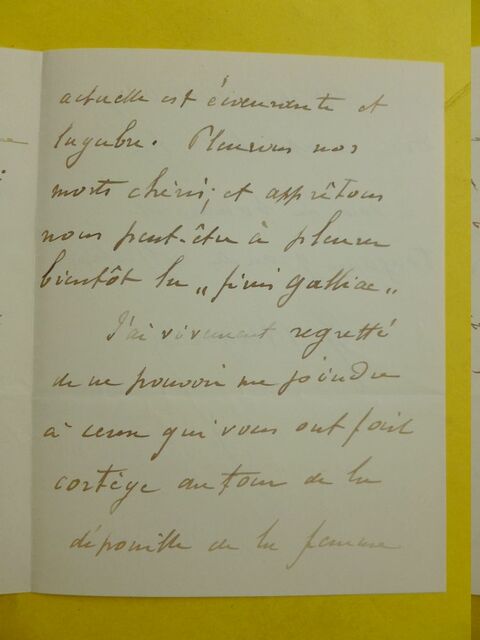 actuelle est écœurante et
lugubre. Pleurons nos
morts chéris; et apprêtons
nous peut-être à pleurer
bientôt la „finis galliae„
J'ai vivement regretté
de ne pouvoir me joindre
à ceux qui vous ont fait
cortège autour de la
dépouille de la femme